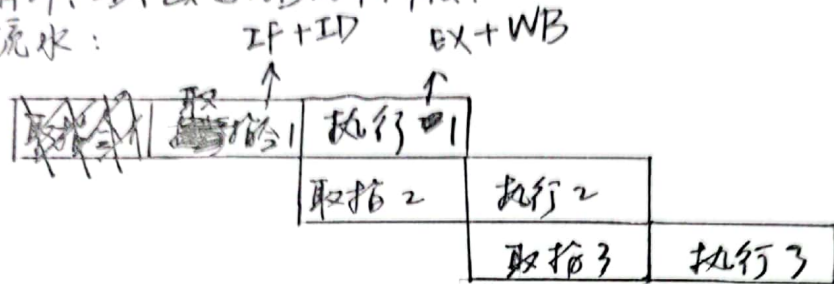 流水：
IF+ID EX+WB
取指令1 执行1
取指2 执行2
取指3 执行3